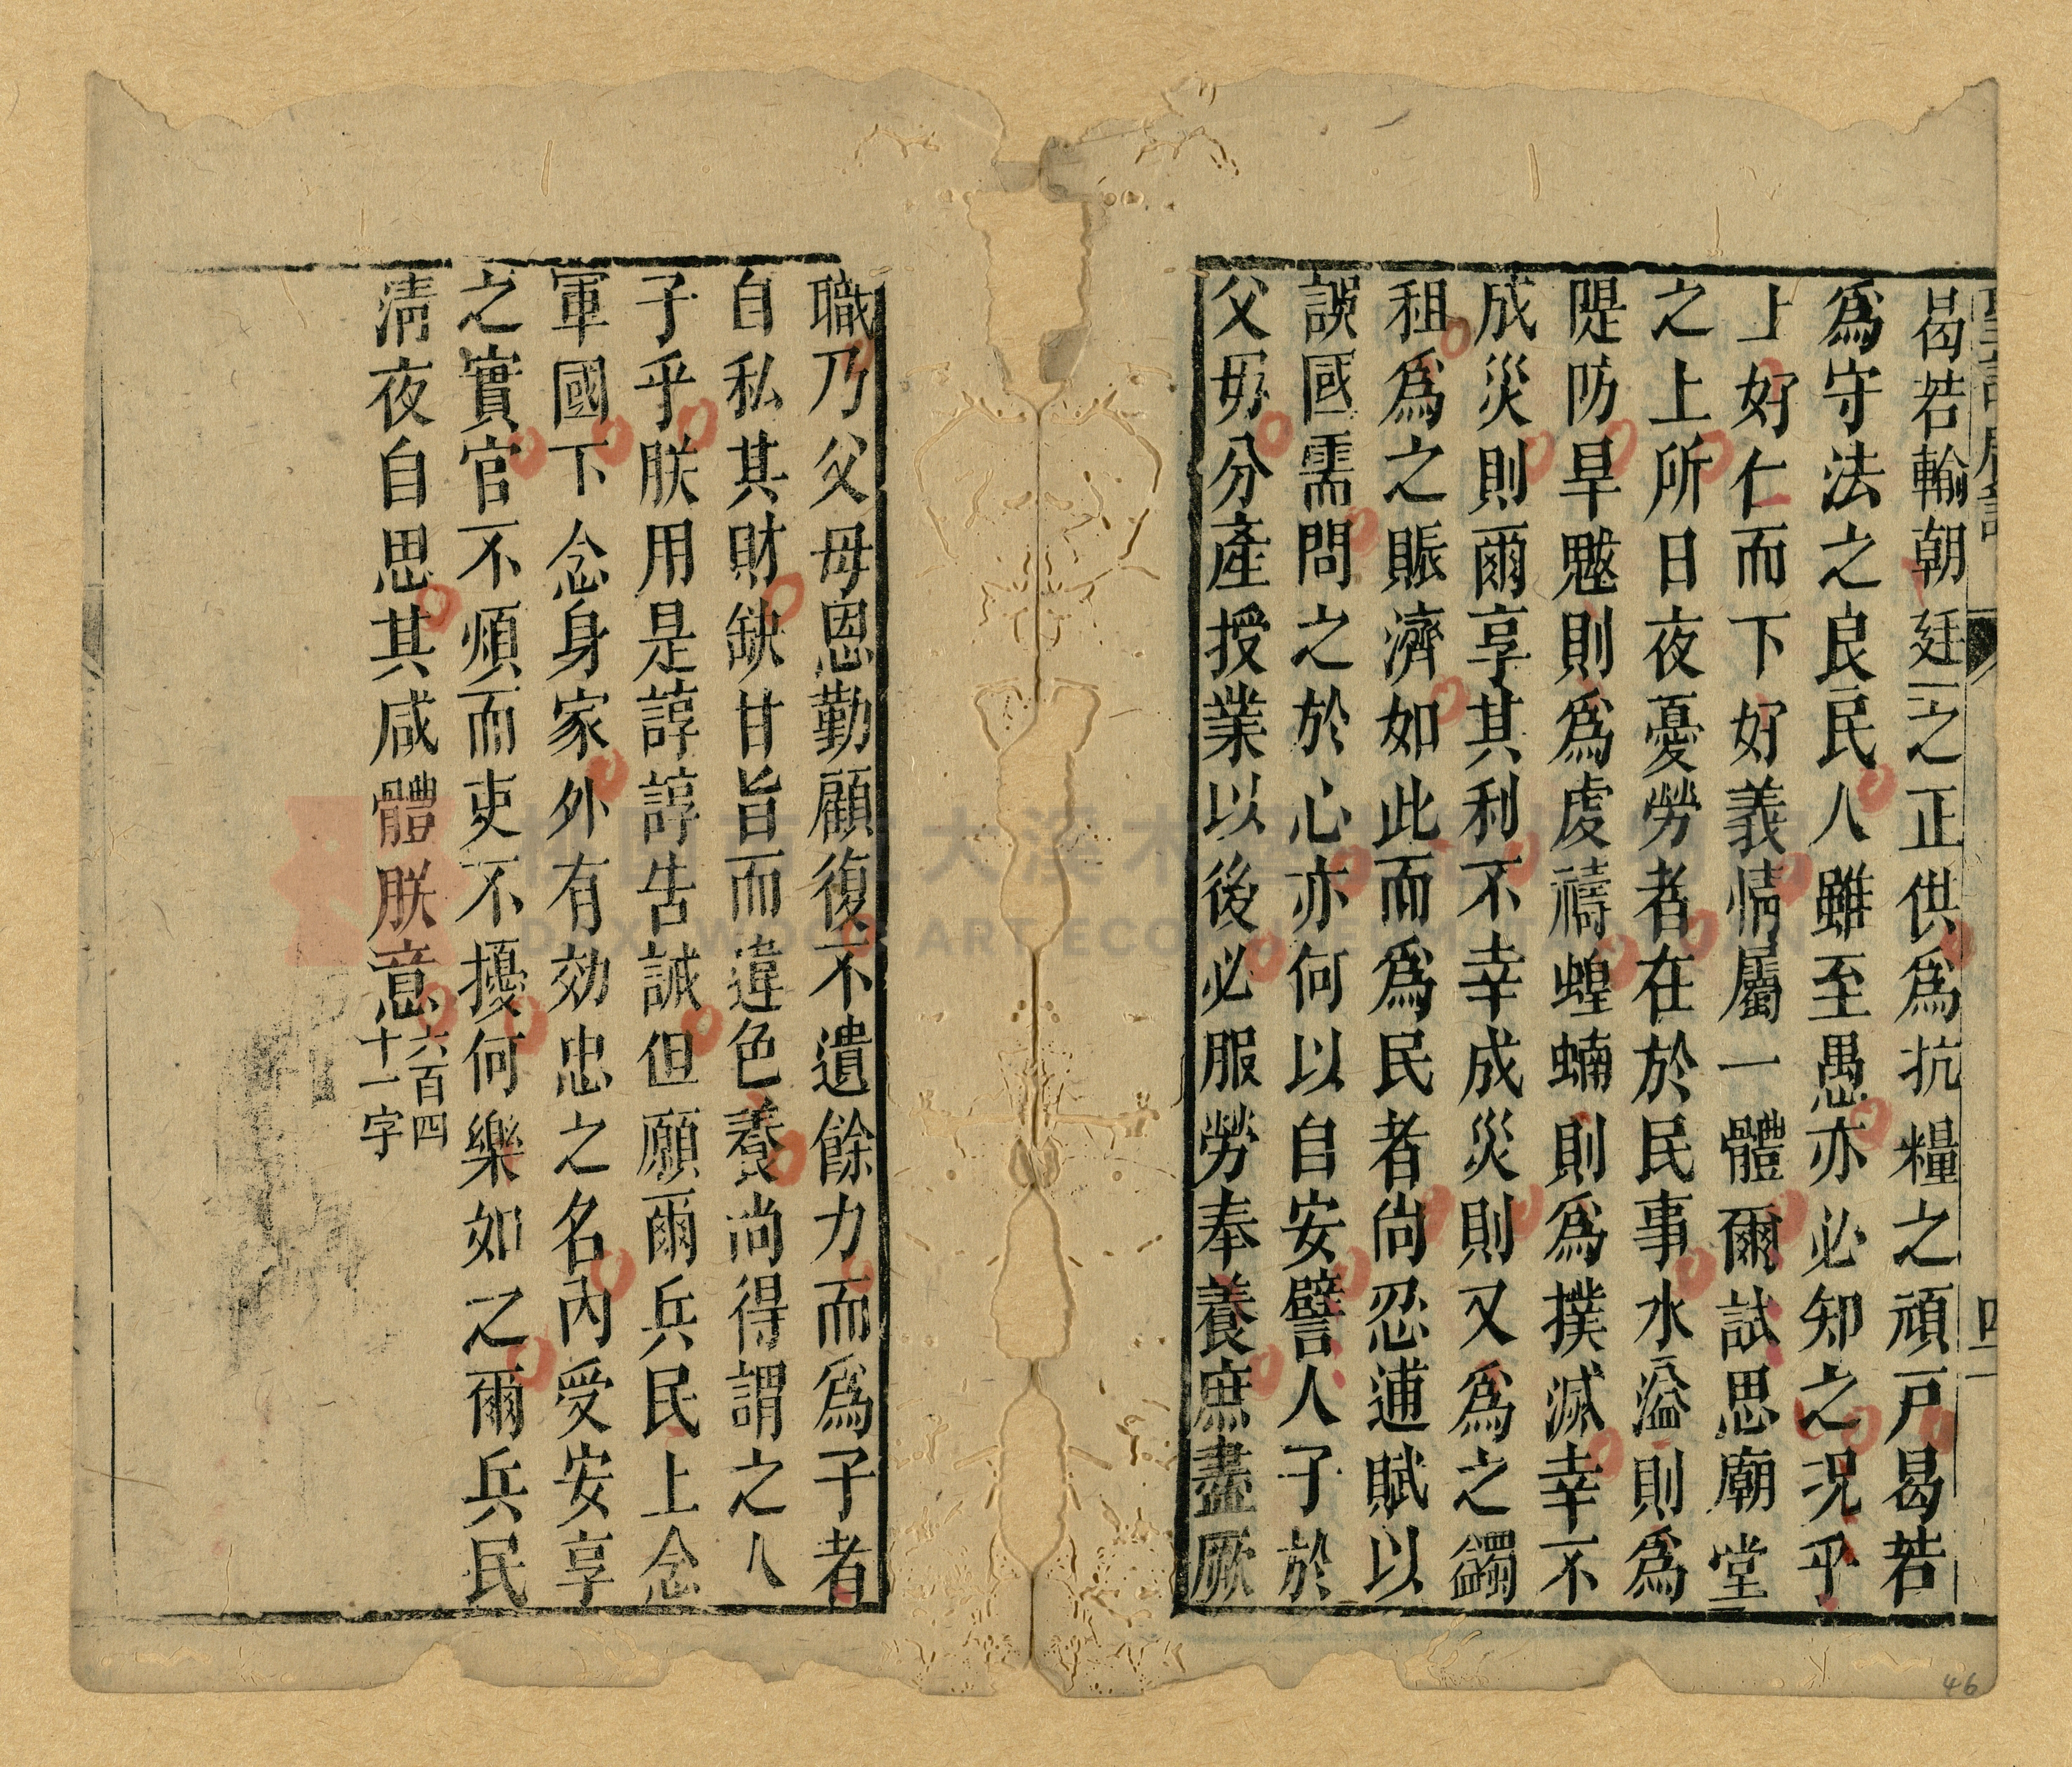 聖諭廣訓
曷若輸朝廷之正供爲抗糧之頑戶曷若
爲守法之良民人雖至愚亦必知之況乎
上好仁而下好義情屬一體爾試思廟堂
之上所日夜憂勞者在於民事水溢則爲
隄防旱魃則爲虔禱蝗蝻則爲撲滅幸不
成災則爾享其利不幸成災則又爲之蠲
租爲之賑濟如此而爲民者尙忍逋賦以
誤國需問之於心亦何以自安譬人子於
父母分產授業以後必服勞奉養庶盡厥
職乃父母恩勤顧復不遺餘力而爲子者
自私其財缺甘旨而違色養尚得謂之人
子乎朕用是諄諄告誡但願爾兵民上念
軍國下念身家外有効忠之名內受安享
之實官不煩而吏不擾何樂如之爾兵民
清夜自思其咸體朕意
六百四
十一字
46